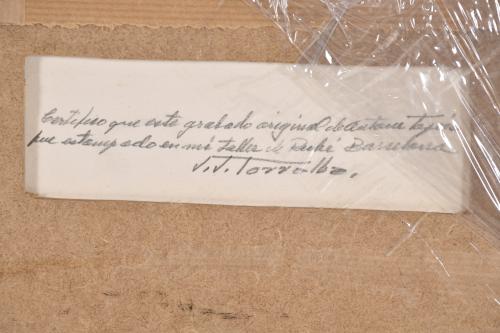 Certifico que este grabado original de Antoni Tapies
fue estampado en mi taller de Barcelona
J.J. Torralba.